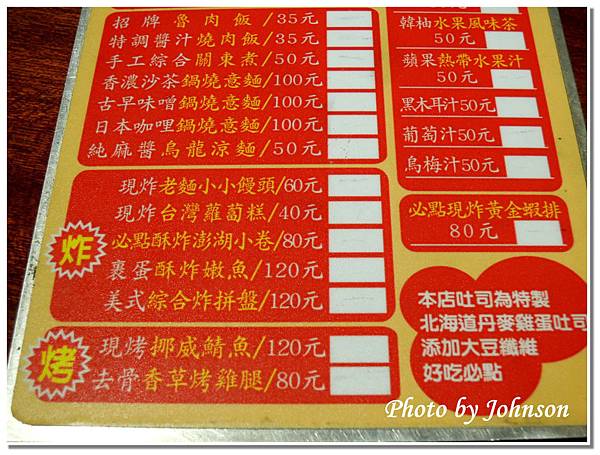 招牌魯肉飯/35元
特調醬汁燒肉飯/35元
手工綜合關東煮/50元
香濃沙茶鍋燒意麵/100元
古早味噌鍋燒意麵/100元
日本咖哩鍋燒意麵/100元
純麻醬烏龍涼麵/50元
炸
現炸老麵小小饅頭/60元
現炸台灣蘿蔔糕/40元
必點酥炸澎湖小卷/80元
裹蛋酥炸嫩魚/120元
美式綜合炸拼盤/120元
烤
現烤挪威鯖魚/120元
去骨香草烤雞腿/80元
韓柚水果風味茶
50元
蘋果熱帶水果汁
50元
黑木耳汁50元
葡萄汁50元
烏梅汁50元
必點現炸黃金蝦排
80元
本店吐司為特製
北海道丹麥雞蛋吐司
添加大豆纖維
好吃必點
Photo by Johnson